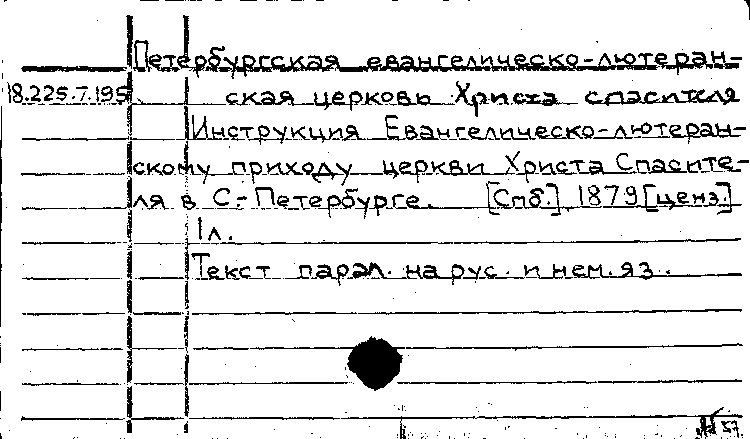 Петербургская евангелическо-лютеран-
18.225.7.195 ская церковь Христа спасителя
Инструкция Евангелическо-лютеран-
скому приходу церкви Христа Спасите-
ля в С.-Петербурге. [Спб.], 1879 [ценз.]
1 л.
Текст парал. на рус. и нем. яз.
57